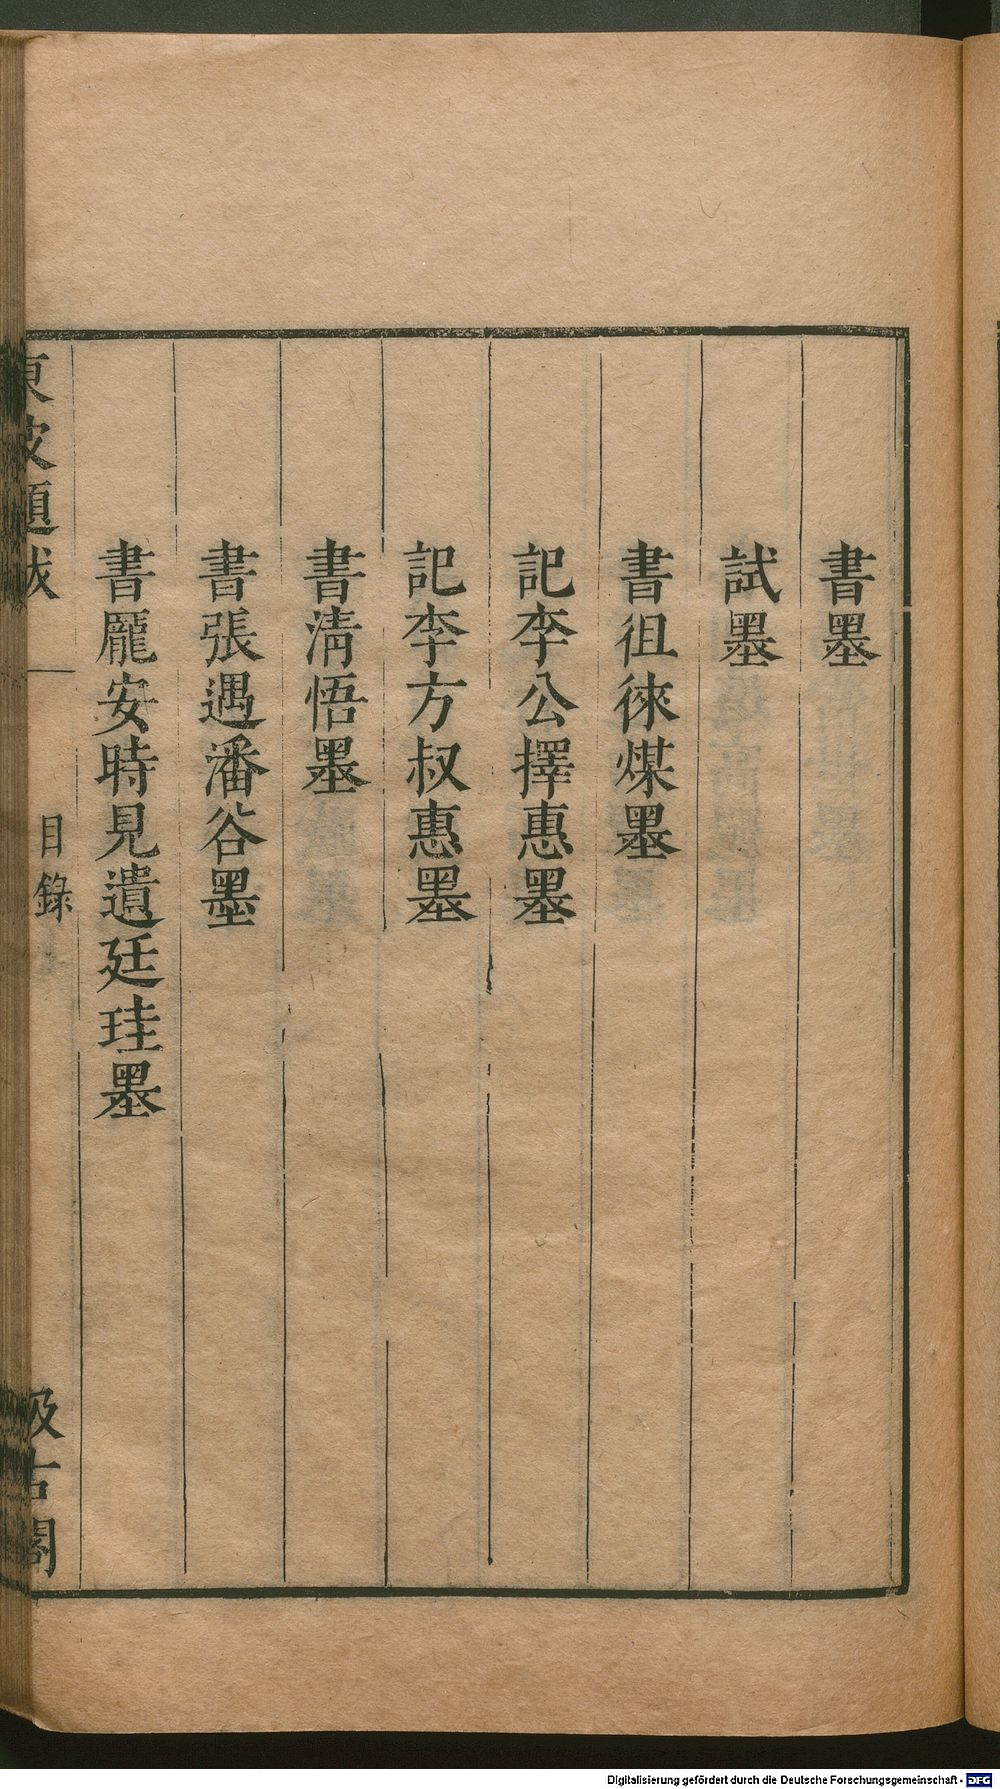 書墨
試墨
書徂徠煤墨
記李公擇惠墨
記李方叔惠墨
書清悟墨
書張遇潘谷墨
書龐安時見遺廷珪墨
東坡題跋 目錄 汲古閣
Digitalisierung gefördert durch die Deutsche Forschungsgemeinschaft - DFG